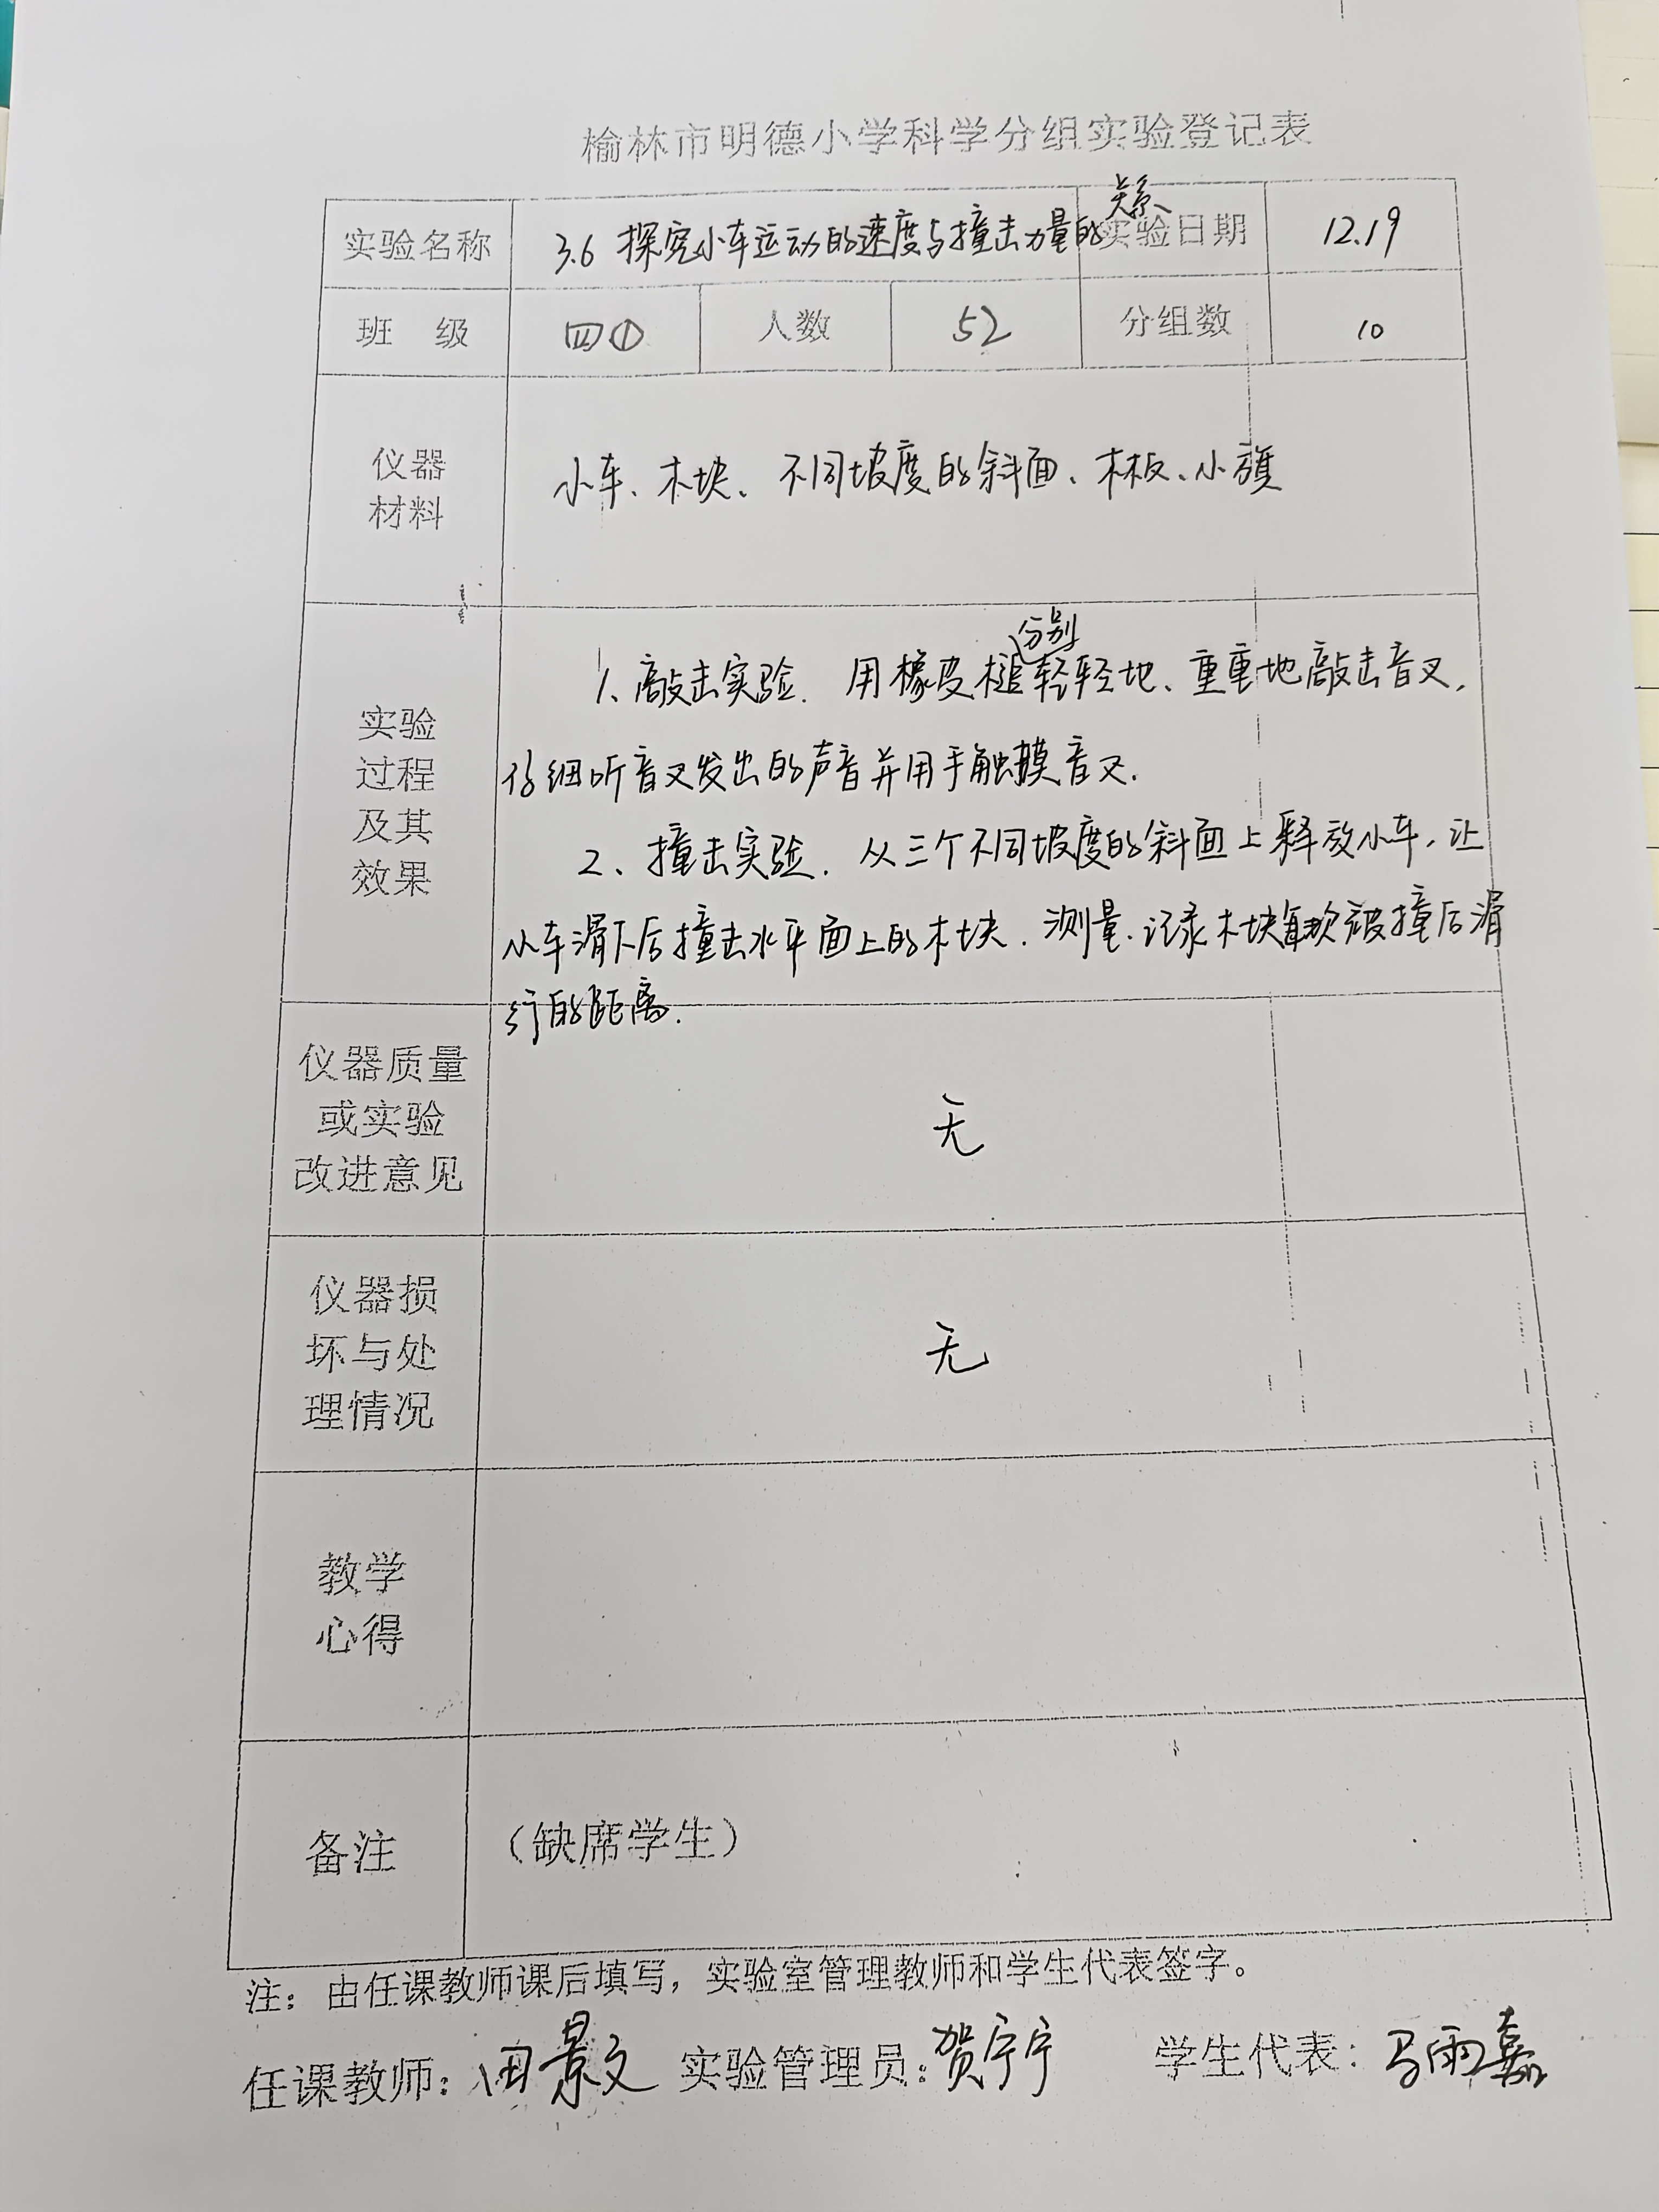 榆林市明德小学科学分组实验登记表
实验名称 3.6 探究小车运动的速度与撞击力量的关系 实验日期 12.19
班 级 四① 人数 52 分组数 10
仪器
材料
小车、木块、不同坡度的斜面、木板、小旗
实验
过程
及其
效果
1、敲击实验.用橡皮槌分别轻轻地、重重地敲击音叉,
仔细听音叉发出的声音并用手触摸音叉.
2、撞击实验.从三个不同坡度的斜面上释放小车,让
小车滑下后撞击水平面上的木块.测量、记录木块每次被撞后滑
行的距离.
仪器质量
或实验
改进意见
无
仪器损
坏与处
理情况
无
教学
心得
备注 （缺席学生）
注：由任课教师课后填写，实验室管理教师和学生代表签字。
任课教师：田景文 实验管理员：贺宁宁 学生代表：马雨嘉